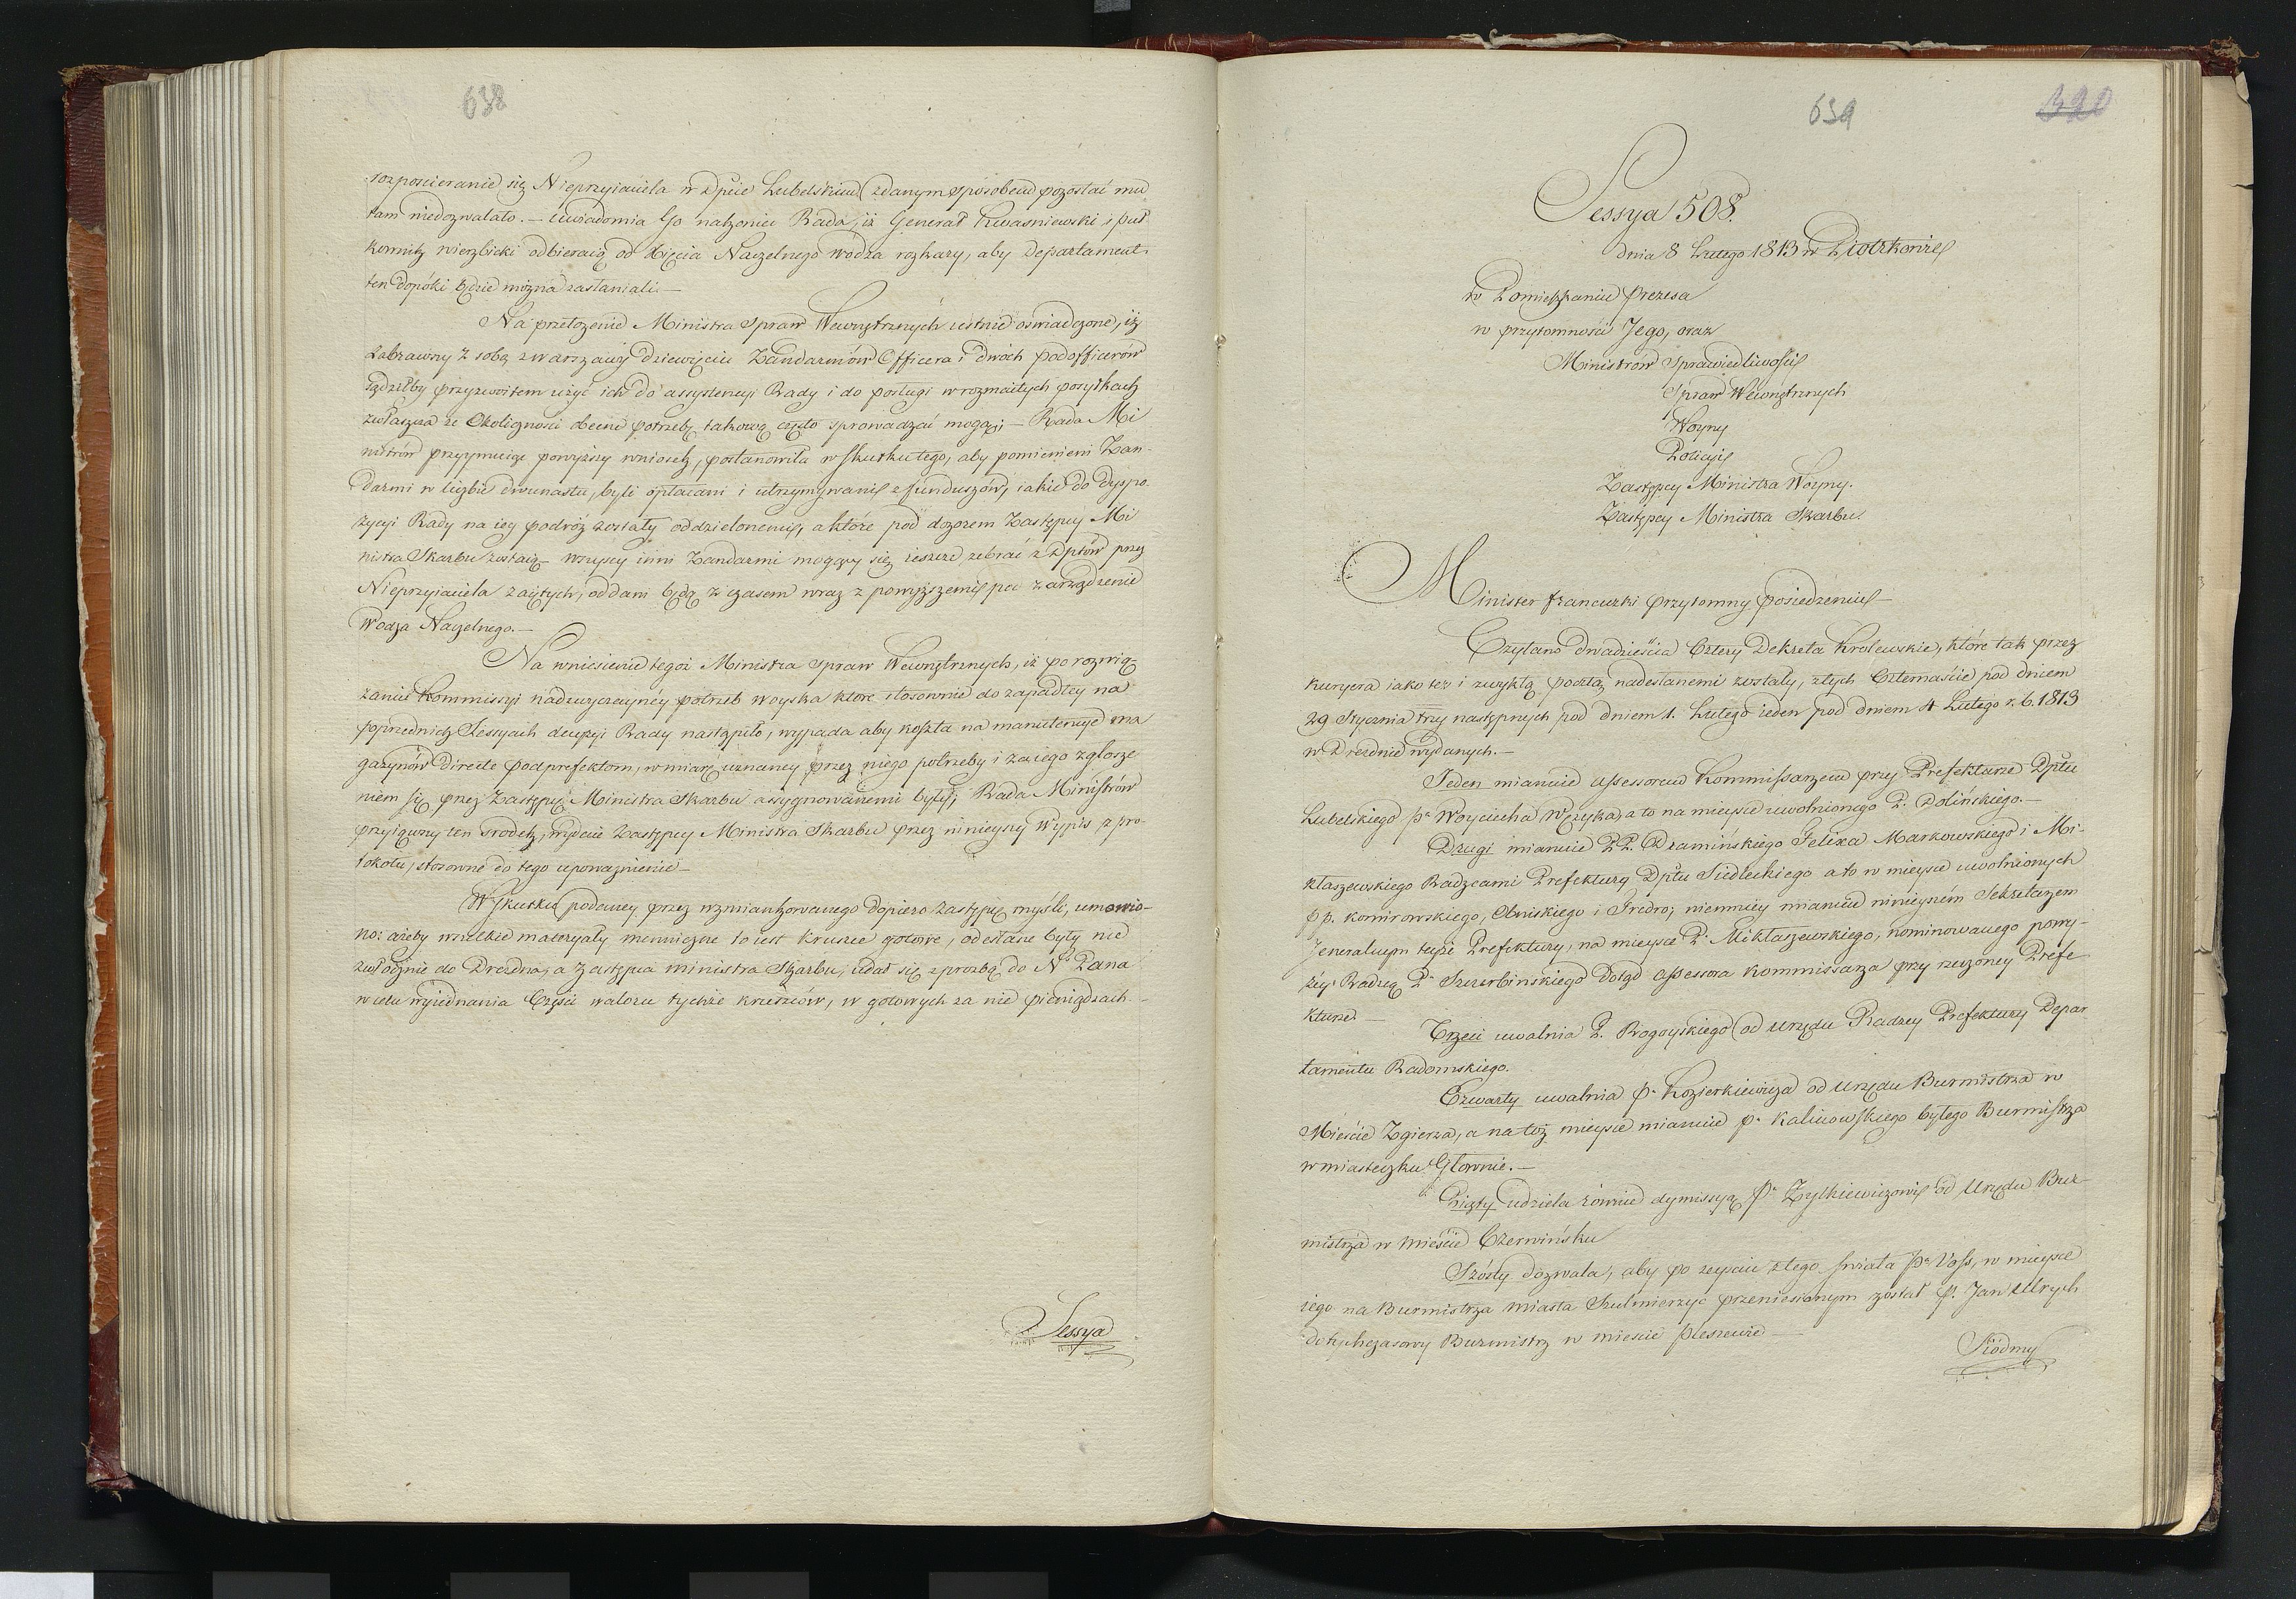 638
rozpościeranie się Nieprzyiaciela w Dpcie Lubelskim zdanym sposobem pozostać mu
tam niedozwalało. — Uwiadomia Go nakoniec Rada, iż Generał Kwasniewski i puł
kownik Wierzbicki odbieraią od Xięcia Naczelnego Wodza rozkazy, aby Departament
ten dopóki będzie można zasłaniali. —
Na przełożenie Ministra Spraw Wewnętrznych ustnie oświadczone, iż
zabrawszy z sobą z Warszawy dziewięciu Żandarmów Officera i dwóch podofficerów
sądziłby przyzwoitem użyć ich do assystencyi Rady i do posługi w rozmaitych posyłkach
zwłaszcza że Okoliczności obecne potrzebę takową często sprowadzać mogą; — Rada Mi
nistrów przyymuiąc powyższy wniosek, postanowiła w skutku tego, aby pomienieni Żan-
darmi w liczbie dwunastu, byli opłacani i utrzymywani z funduszów, iakie do dyspo-
zycyi Rady na iey podróż zostały oddzielonemi, a które pod dozorem Zastępcy Mi
nistra Skarbu zostaią — wszyscy inni Żandarmi mogący się ieszcze zebrać z Dptów przez
Nieprzyiaciela zaiętych, oddani będą z czasem wraz z powyższemi pod zarządzenie
Wodza Naczelnego. —
Na wniesienie tegoż Ministra Spraw Wewnętrznych, iż po rozwią
zaniu Kommissyi nadzwyczayney potrzeb woyska które stosownie do zapadłey na
poprzednich Sessyach decyzyi Rady nastąpiło, wypada aby koszta na manutencyę ma
gazynów directe podprefektom, w miarę uznaney przez niego potrzeby i za iego zgłosze
niem się przez Zastępcę Ministra Skarbu assygnowanemi były; Rada Ministrów
przyiąwszy ten środek, wydaie Zastępcy Ministra Skarbu przez ninieyszy Wypis z pro-
tokołu, stosowne do tego upoważnienie —
W skutku podaney przez wzmiankowanego dopiero Zastępcę myśli, umówio-
no: ażeby wszelkie materyały mennicze to iest kruszce gotowe, odesłane były nie
zwłócznie do Drezna, a Zastępca Ministra Skarbu, udał się z prozbą do N. Pana
w celu wyiednania Części waloru tychże kruszców, w gotowych za nie pieniądzach. —
Sessya
639
320
Sessya 508.
dnia 8 Lutego 1813 w Piotrkowie
w Pomieszkaniu Prezesa
w przytomności Jego, oraz
Ministrów Sprawiedliwości
Spraw Wewnętrznych
Woyny
Policyi
Zastępcy Ministra Woyny.
Zastępcy Ministra Skarbu.
Minister francuzki przytomny posiedzeniu —
Czytano dwadzieścia Cztery Dekreta Krolewskie, które tak przez
Kuryera iako też i zwykłą pocztą nadesłanemi zostały, z tych Czternaście pod dniem
29 Stycznia trzy następnych pod dniem 1. Lutego ieden pod dniem 4 Lutego r. b. 1813
w Dreznie wydanych. —
Jeden mianuie Assessorem Kommissarzem przy Prefekturze Dptu
Lubelskiego Pa Woyciecha Wężyka, a to na mieysce uwolnionego P. Dolińskiego. —
Drugi mianuie PP. Dramińskiego Felixa Markowskiego i Mi-
kłaszewskiego Radzcami Prefektury Dptu Siedleckiego a to w mieysce uwolnionych
pp. Komirowskiego, Obniskiego i Fredro; niemniey mianuie ninieyszém Sekretarzem
Jeneralnym teyże Prefektury, na mieysce P. Mikłaszewskiego, nominowanego powy-
żéy Radzcą Pa Szczerbinskiego dotąd Assessora Kommissarza przy rzeczoney Prefe
kturze. —
Trzeci uwalnia P. Rogoyskiego od Urzędu Radzcy Prefektury Depar
tamentu Radomskiego.
Czwarty uwalnia Pa Kozierkiewicza od Urzędu Burmistrza w
Mieście Zgierza, a na toż mieysce mianuie Pa Kalinowskiego byłego Burmistrza
w miasteczku Głownie. —
Piąty udziela równie dymissyą Pu Zylkiewiczowi od Urzędu Bur-
mistrza w mieście Czerwińsku
Szósty dozwala, aby po zeyściu z tego świata Pa Voss, w mieysce
iego na Burmistrza miasta Szulmierzyc przeniesionym został P. Jan Ulrych
dotychczasowy Burmistrz w mieście Pleszewie —
Siódmy